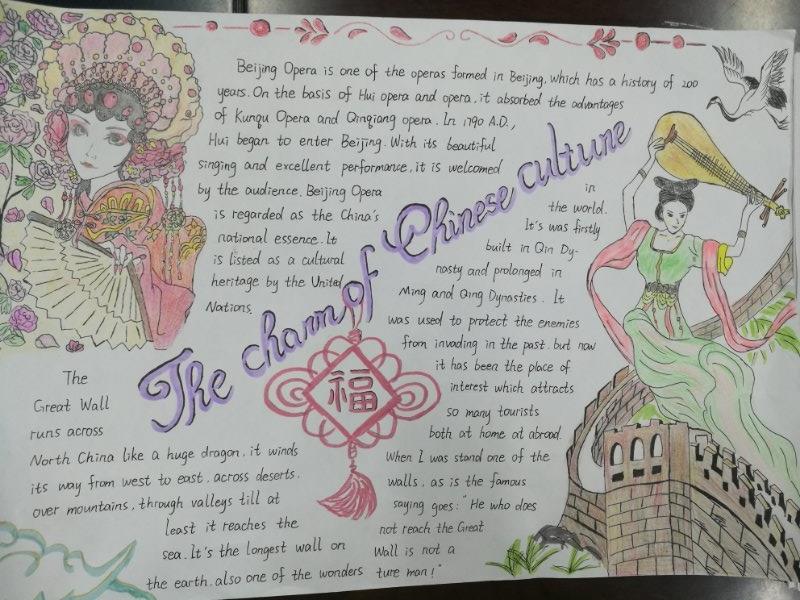 Beijing Opera is one of the operas formed in Beijing, which has a history of 200
years. On the basis of Hui opera and opera, it absorbed the advantages
of Kunqu Opera and Qinqiang opera. In 1790 A.D.,
Hui began to enter Beijing. With its beautiful
singing and excellent performance, it is welcomed
by the audience. Beijing Opera
is regarded as the China's
national essence. It
is listed as a cultural
heritage by the United
Nations.
The charm of Chinese culture
福
The
Great Wall
runs across
North China like a huge dragon, it winds
its way from west to east, across deserts,
over mountains, through valleys till at
least it reaches the
sea. It's the longest wall on
the earth, also one of the wonders
in
the world.
It's was firstly
built in Qin Dy-
nasty and prolonged in
Ming and Qing Dynasties. It
was used to protect the enemies
from invading in the past, but now
it has been the place of
interest which attracts
so many tourists
both at home at abroad.
When I was stand one of the
walls, as is the famous
saying goes: "He who does
not reach the Great
Wall is not a
ture man!"